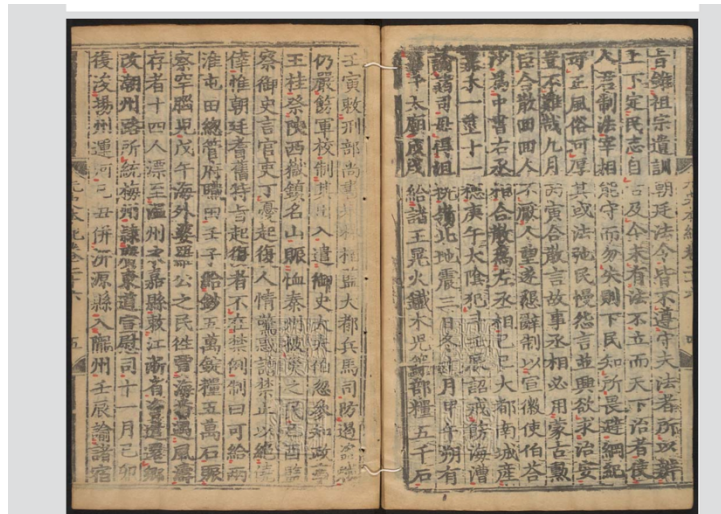 旨雖祖宗遺訓朝廷法令皆不遵守夫法者所以辨
上下定民志自古及今未有法不立而天下治者使
人君制法宰相能守而勿失則下民知所畏避綱紀
可正風俗可厚其或法弛民慢怨言並興欲求治安
豈不難哉九月丙寅合散言故事丞相必用蒙古勲
臣合散回回人不厭人望遂懇辭制以宣徽使伯荅
沙爲中書右丞相合散爲左丞相己巳大都南城産
嘉禾一莖十一穗庚午太陰犯斗壬辰詔戒飭海漕
諭諸司毋得沮撓嶺北地震三日冬十月甲午朔有
事于太廟戊戌給諸王晃火鐵木兒等部糧五千石
壬寅敕刑部尚書舉林栢監大都兵馬司防遏盗賊
仍嚴飭軍校制其出入遣御史大夫伯忽參知政事
王桂祭陜西嶽鎮名山賑恤秦州被災之民己酉監
察御史言官吏丁憂起復人情驚惑請禁止以絶僥
倖惟朝廷耆舊特旨起復者不在禁例制曰可給兩
淮屯田總管府疇田壬子給鈔五萬錠糧五萬石賑
察罕腦兒戊午海外婆羅公之民往賈海番遇風濤
存者十四人漂至溫州永嘉縣敕江浙省資遣還鄉
改潮州路所統梅州隸廣東道宣慰司十一月己卯
復浚揚州運河己丑併沂源縣入隴州壬辰諭諸宿